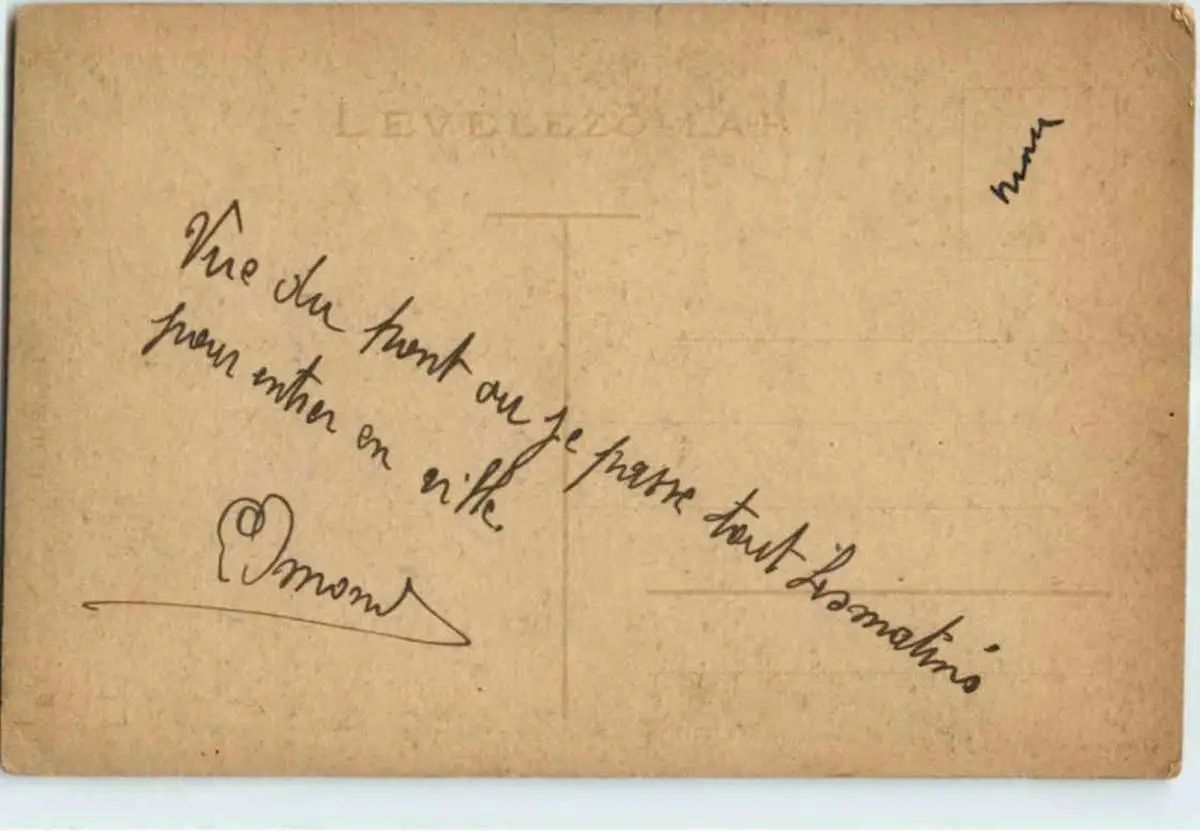 LEVELEZŐ-LAP
Vue du pont ou je passe tout les matins
pour entrer en ville.
Edmond